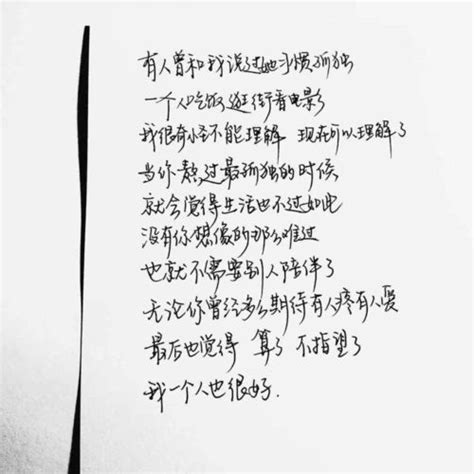 有人曾和我说过她习惯孤独
一个人吃饭逛街看电影
我很奇怪不能理解 现在可以理解了
当你熬过最孤独的时候
就会觉得生活也不过如此
没有你想像的那么难过
也就不需要别人陪伴了
无论你曾经多么期待有人疼有人爱
最后也觉得 算了 不指望了
我一个人也很好.